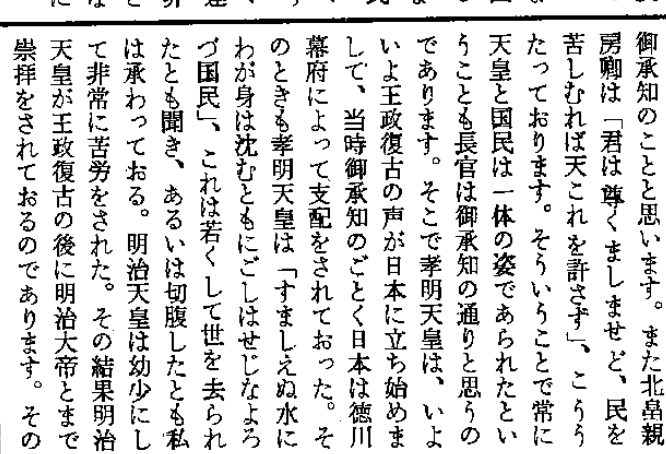 御承知のことと思います。また北畠親
房卿は「君は尊くましませど、民を
苦しむれば天これを許さず」、こうう
たっております。そういうことで常に
天皇と国民は一体の姿であられたとい
うことも長官は御承知の通りと思うの
であります。そこで孝明天皇は、いよ
いよ王政復古の声が日本に立ち始めま
して、当時御承知のごとく日本は徳川
幕府によって支配をされておった。そ
のときも孝明天皇は「すましえぬ水に
わが身は沈むともにごしはせじなよろ
づ国民」、これは若くして世を去られ
たとも聞き、あるいは切腹したとも私
は承わっておる。明治天皇は幼少にし
て非常に苦労をされた。その結果明治
天皇が王政復古の後に明治大帝とまで
崇拝をされておるのであります。その